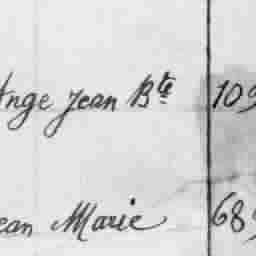 Ange Jean Bte 109
ean Marie 689